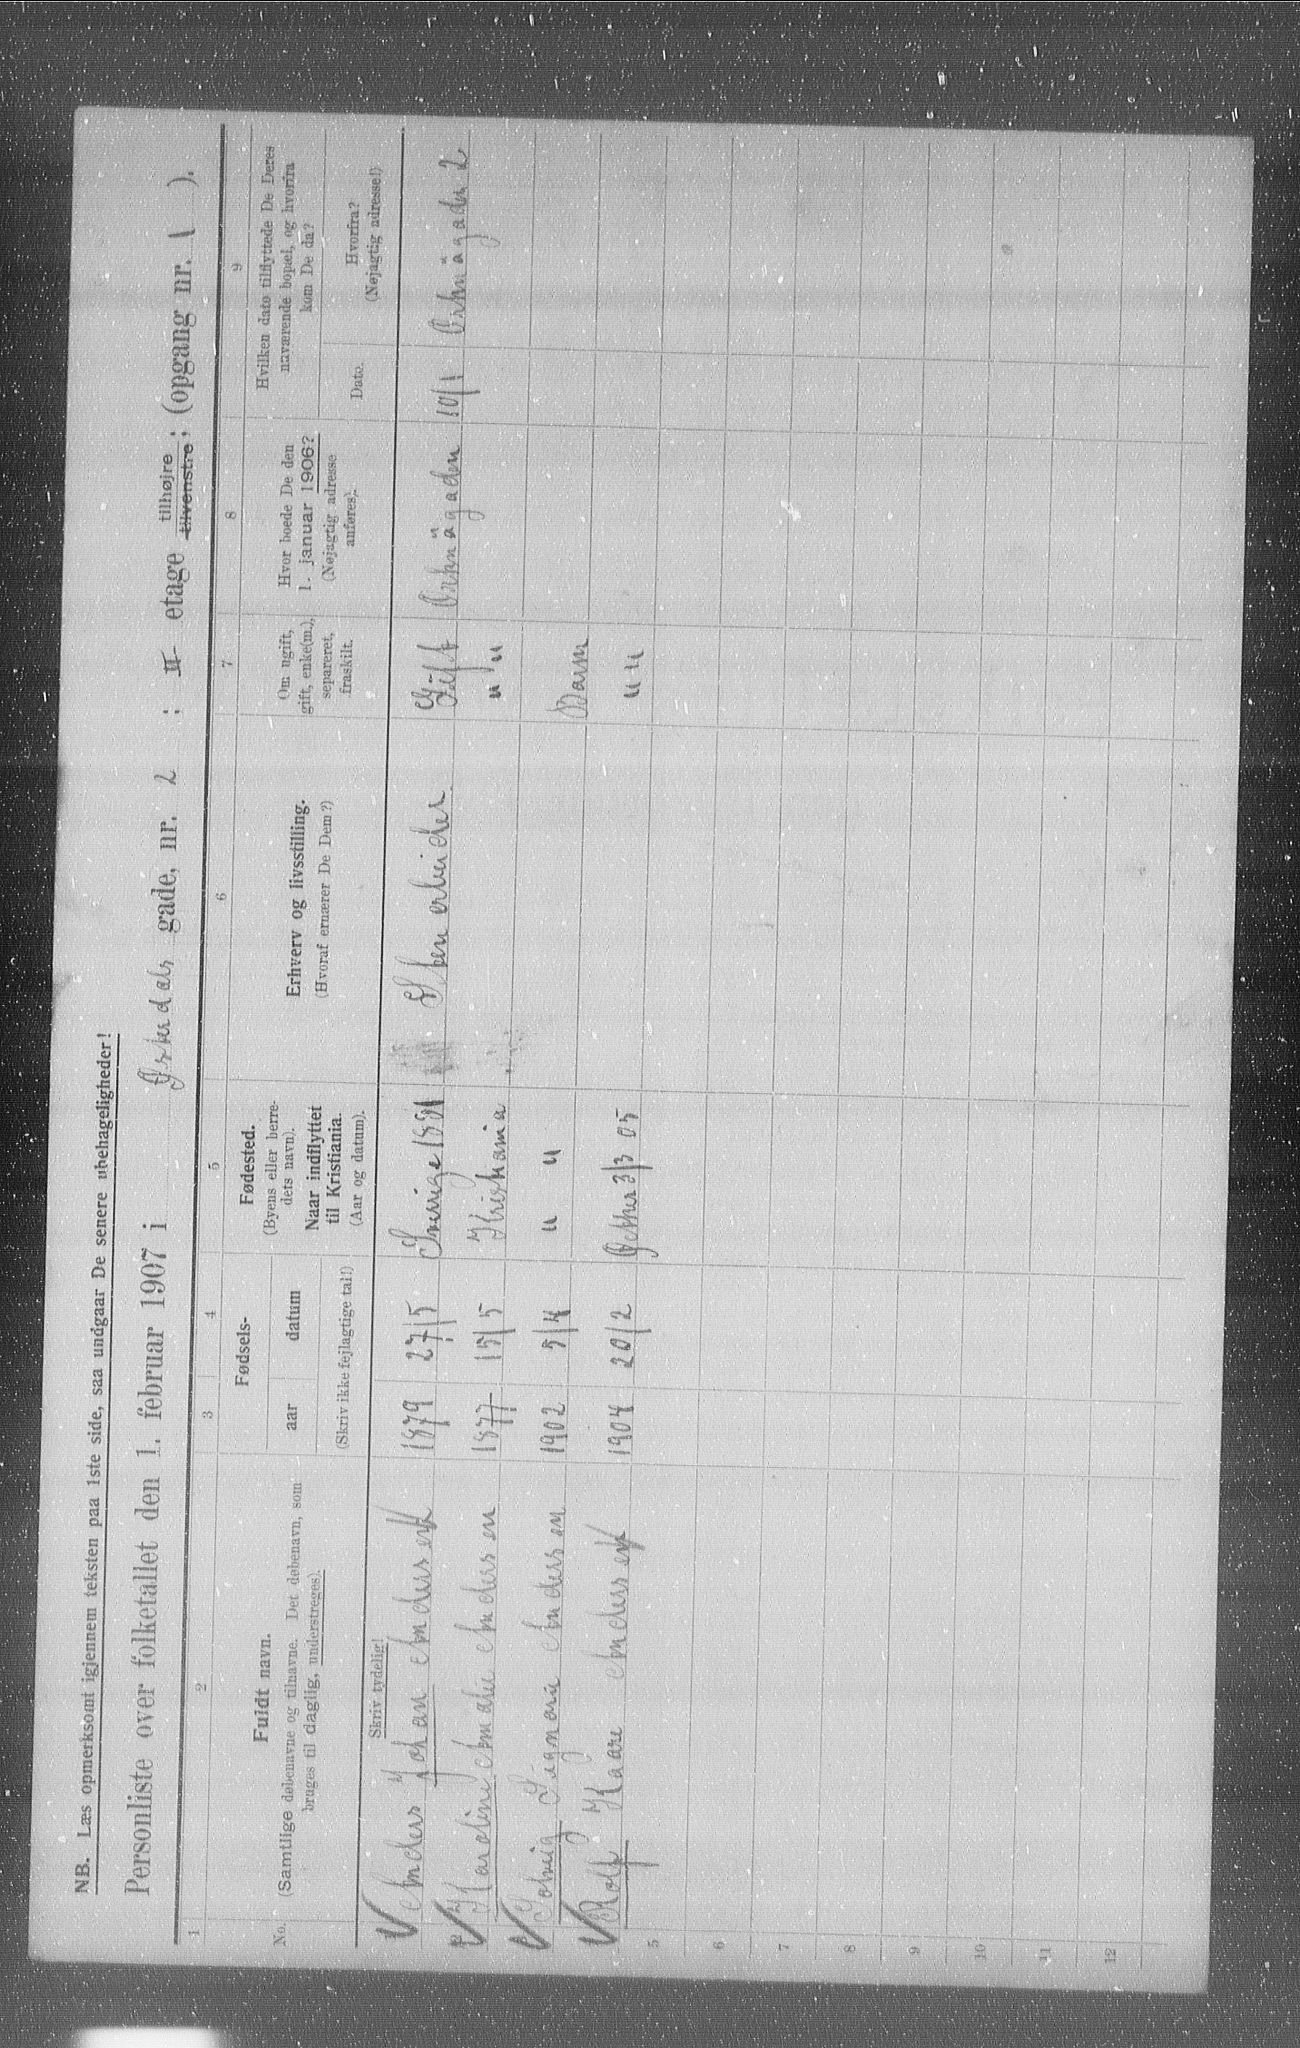 NB. Læs opmerksomt igjennem teksten paa 1ste side, saa undgaar De senere ubehageligheder!
Personliste over folketallet den 1. februar 1907 i Østerdals gade, nr. 2 ; II etage tilhøjre tilvenstre; (opgang nr. 1 ).
1 2 3 4 5 6 7 8 9
No.
Fuldt navn.
(Samtlige døbenavne og tilnavne. Det døbenavn, som
bruges til daglig, understreges).
Skriv tydelig!
Fødsels-
aar datum
(Skriv ikke fejlagtige tal!)
Fødested.
(Byens eller herre-
dets navn).
Naar indflyttet
til Kristiania.
(Aar og datum).
Erhverv og livsstilling.
(Hvoraf ernærer De Dem?)
Om ugift,
gift, enke(m.),
separeret,
fraskilt.
Hvor boede De den
1. januar 1906?
(Nøjagtig adresse
anføres).
Hvilken dato tilflyttede De Deres
nuværende bopæl, og hvorfra
kom De da?
Dato.
Hvorfra?
(Nøjagtig adresse!)
Anders Johan Andersen 1879 27/5 Sverrige 1881 Stenarbeider Gift 10/1
2 Karoline Amalie Andersen 1877 15/5 Kristiania " "
Solveig Signora Andersen 1902 5/4 " " Barn
Rolf Kaare Andersen 1904 20/2 3/3 05 " "
5
6
7
8
9
10
11
12